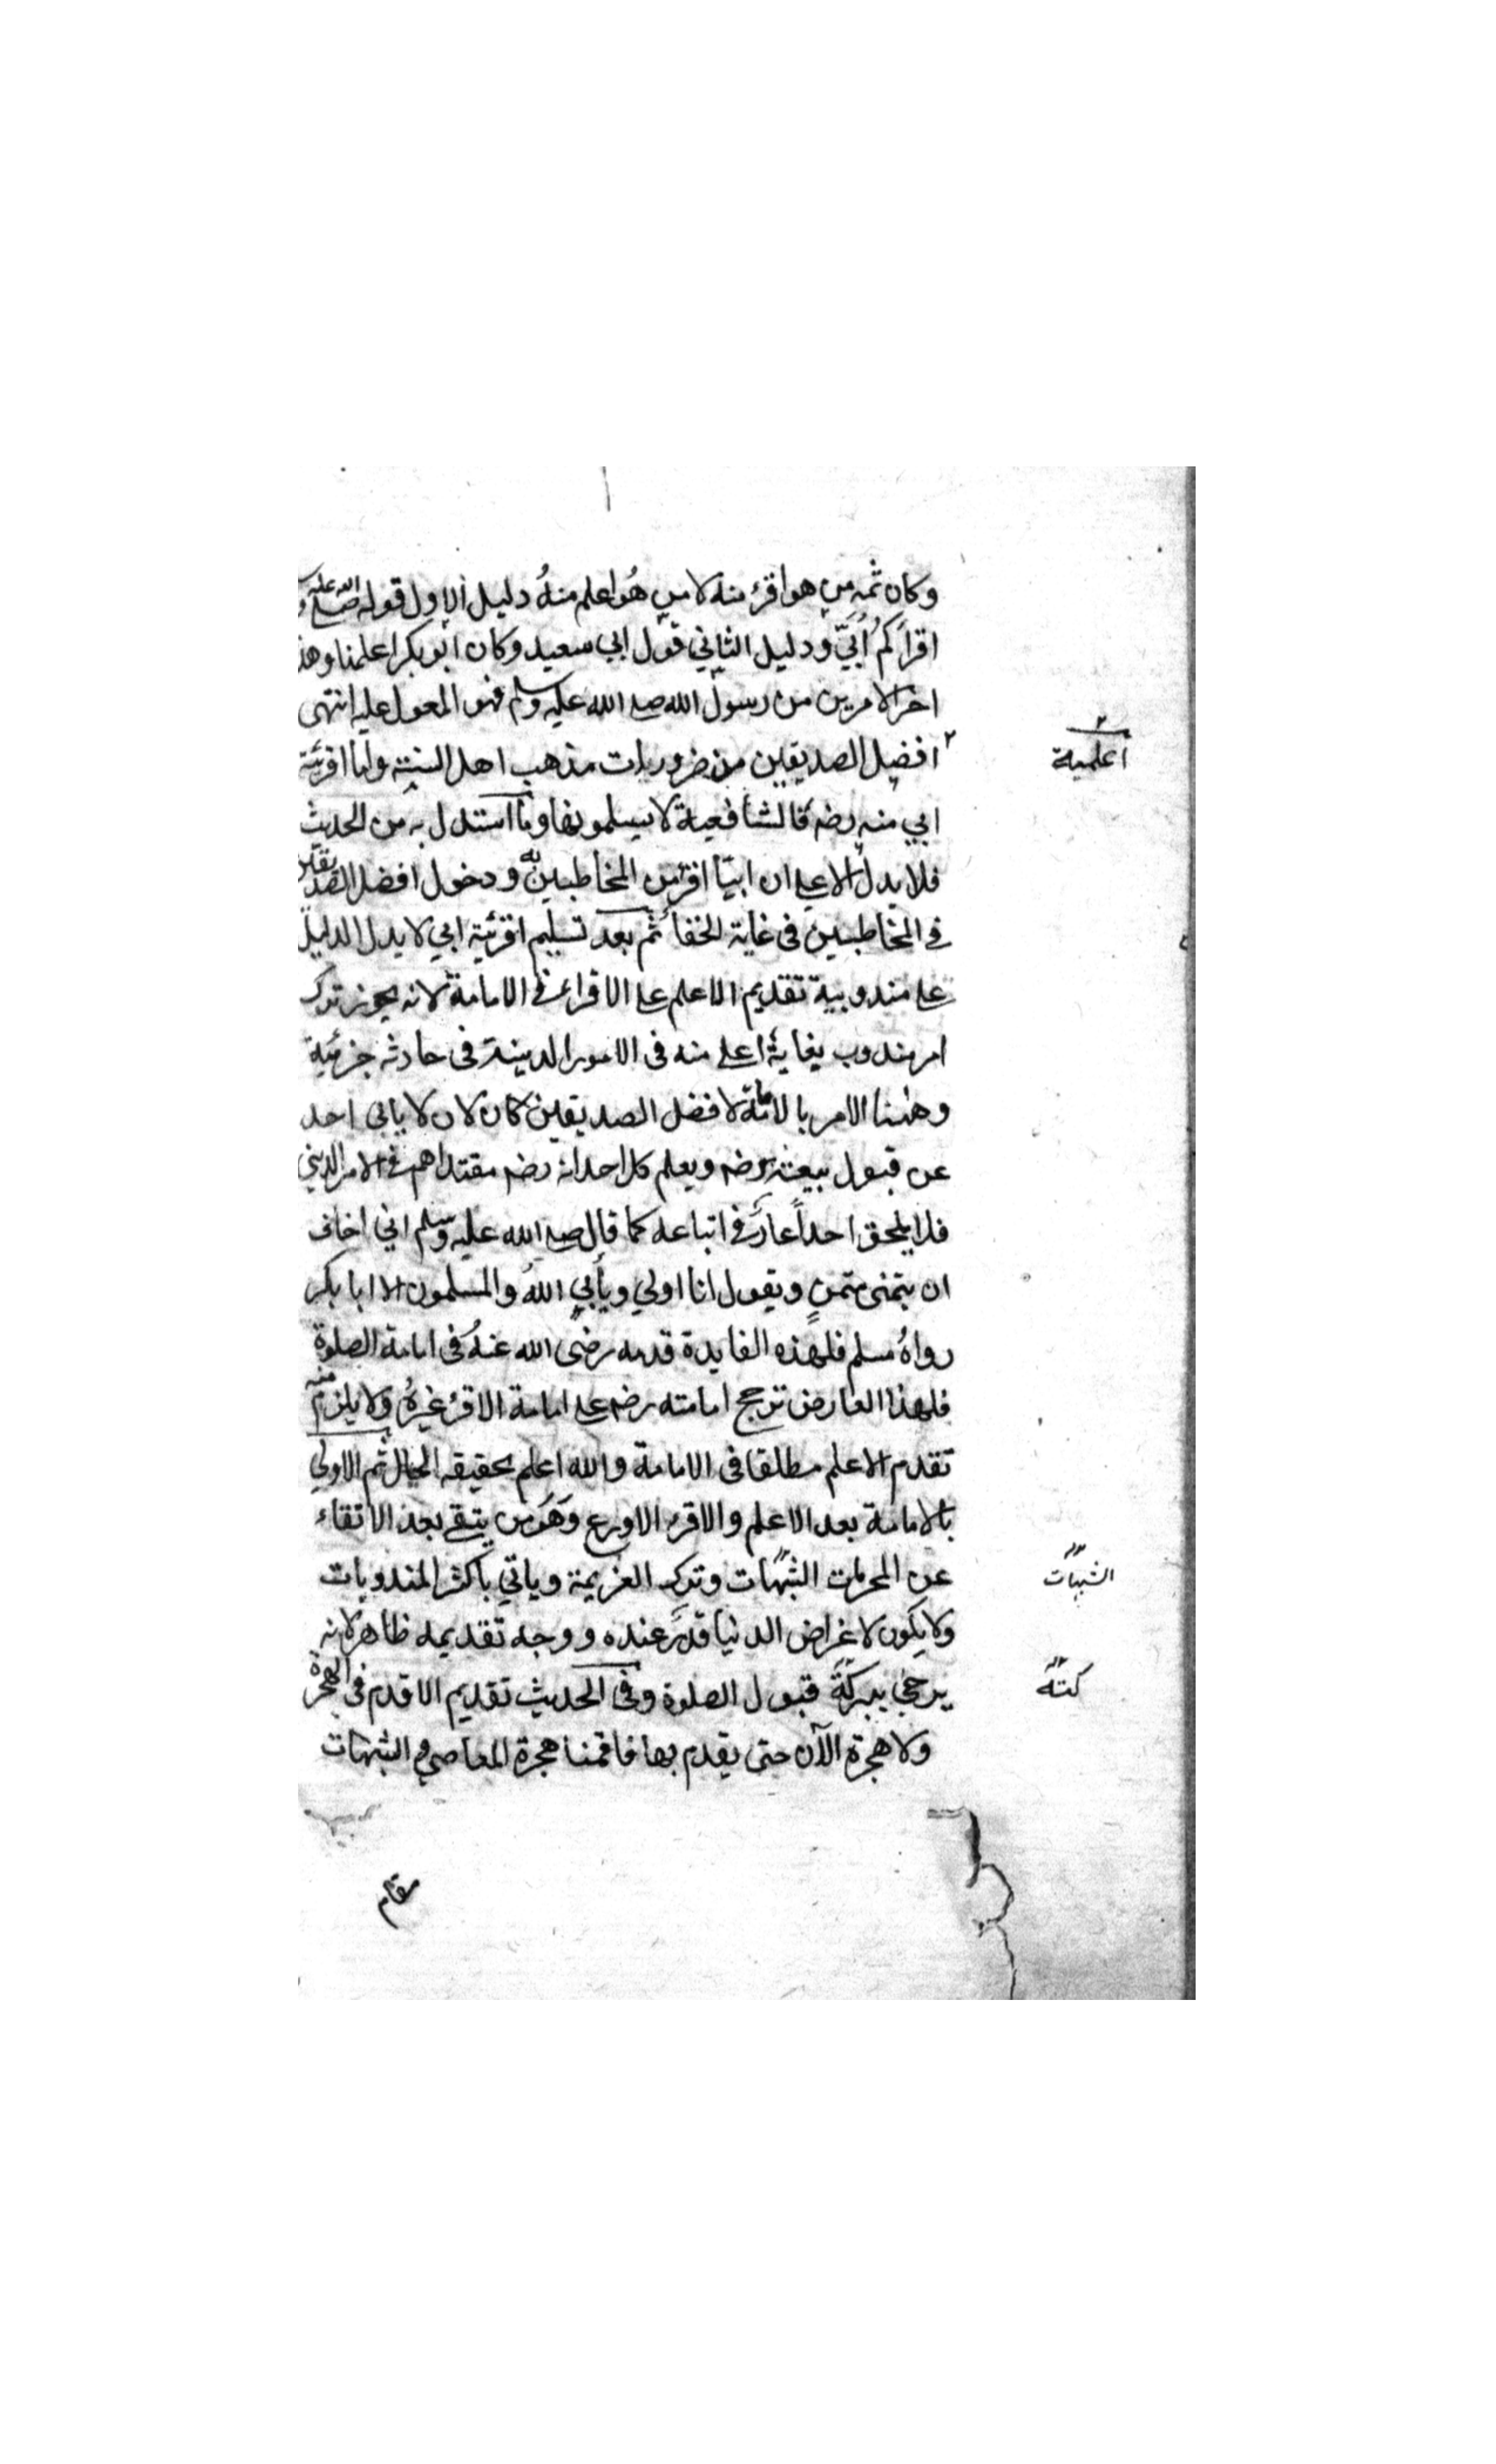 وكان ثمه من هو اقرء منه لا من هُو اعلم منهُ دليل الاول قوله صلى الله عليه و
اقرأكم أُبَيّ ودليل الثاني قول ابي سعيد وكان ابو بكر اعلمنا وهذ
اخر الامرين من رسول الله صلى الله عليه وسلم فهو المعول عليه انتهى
٢ افضل الصديقين من ضروريات مذهب اهل السنة واما اقرئية
اعلمية ٢
ابي منه رضه فالشافعية لا يسلمونها وما استدل به من الحديث
فلا يدل الا على ان ابيّا اقرء من المخاطبين به ودخول افضل الصديقين
في المخاطبين فى غاية الخفا ثم بعد تسليم اقرئية ابي لا يدل الدليل
على مندوبية تقديم الاعلم على الاقراء في الامامة لانه يجوز ترك
امر مندوب بغاية اعلى منه فى الامور الدينية فى حادثه جزئية
وههنا الامر بالامامة لافضل الصديقين كان لان لا يابى احد
عن قبول بيعته رضه ويعلم كل احد انه رضه مقتداهم في الامر الديني
فلا يلحق احداً عار في اتباعه كما قال صلى الله عليه وسلم اني اخاف
ان يتمنى متمنٍ ويقول انا اولي ويأبي اللهُ والمسلمون الا ابا بكر
رواهُ مسلم فلهذه الفايدة قدمه رضى الله عنهُ فى امامة الصلوة
فلهذا العارض ترجح امامته رضه على امامة الاقرء غيرهُ ولا يلزم منه
تقدم الاعلم مطلقا فى الامامة والله اعلم بحقيقه الحال ثم الاولي
بالامامة بعد الاعلم والاقرء الاورع وهَو من يتقي بعد الاتقاء
عن المحرمات الشبهات وترك العزيمة وياتي باكثر المندوبات
الشبهات
ولا يكون لاغراض الدنيا قدر عنده ووجه تقديمه ظاهر لانه
يرجى ببركة قبول الصلوة وفى الحديث تقديم الاقدم فى الهجرة
ولا هجرة الآن حتى يقدم بها فاقمنا هجرة المعاصي والشبهات
مقام